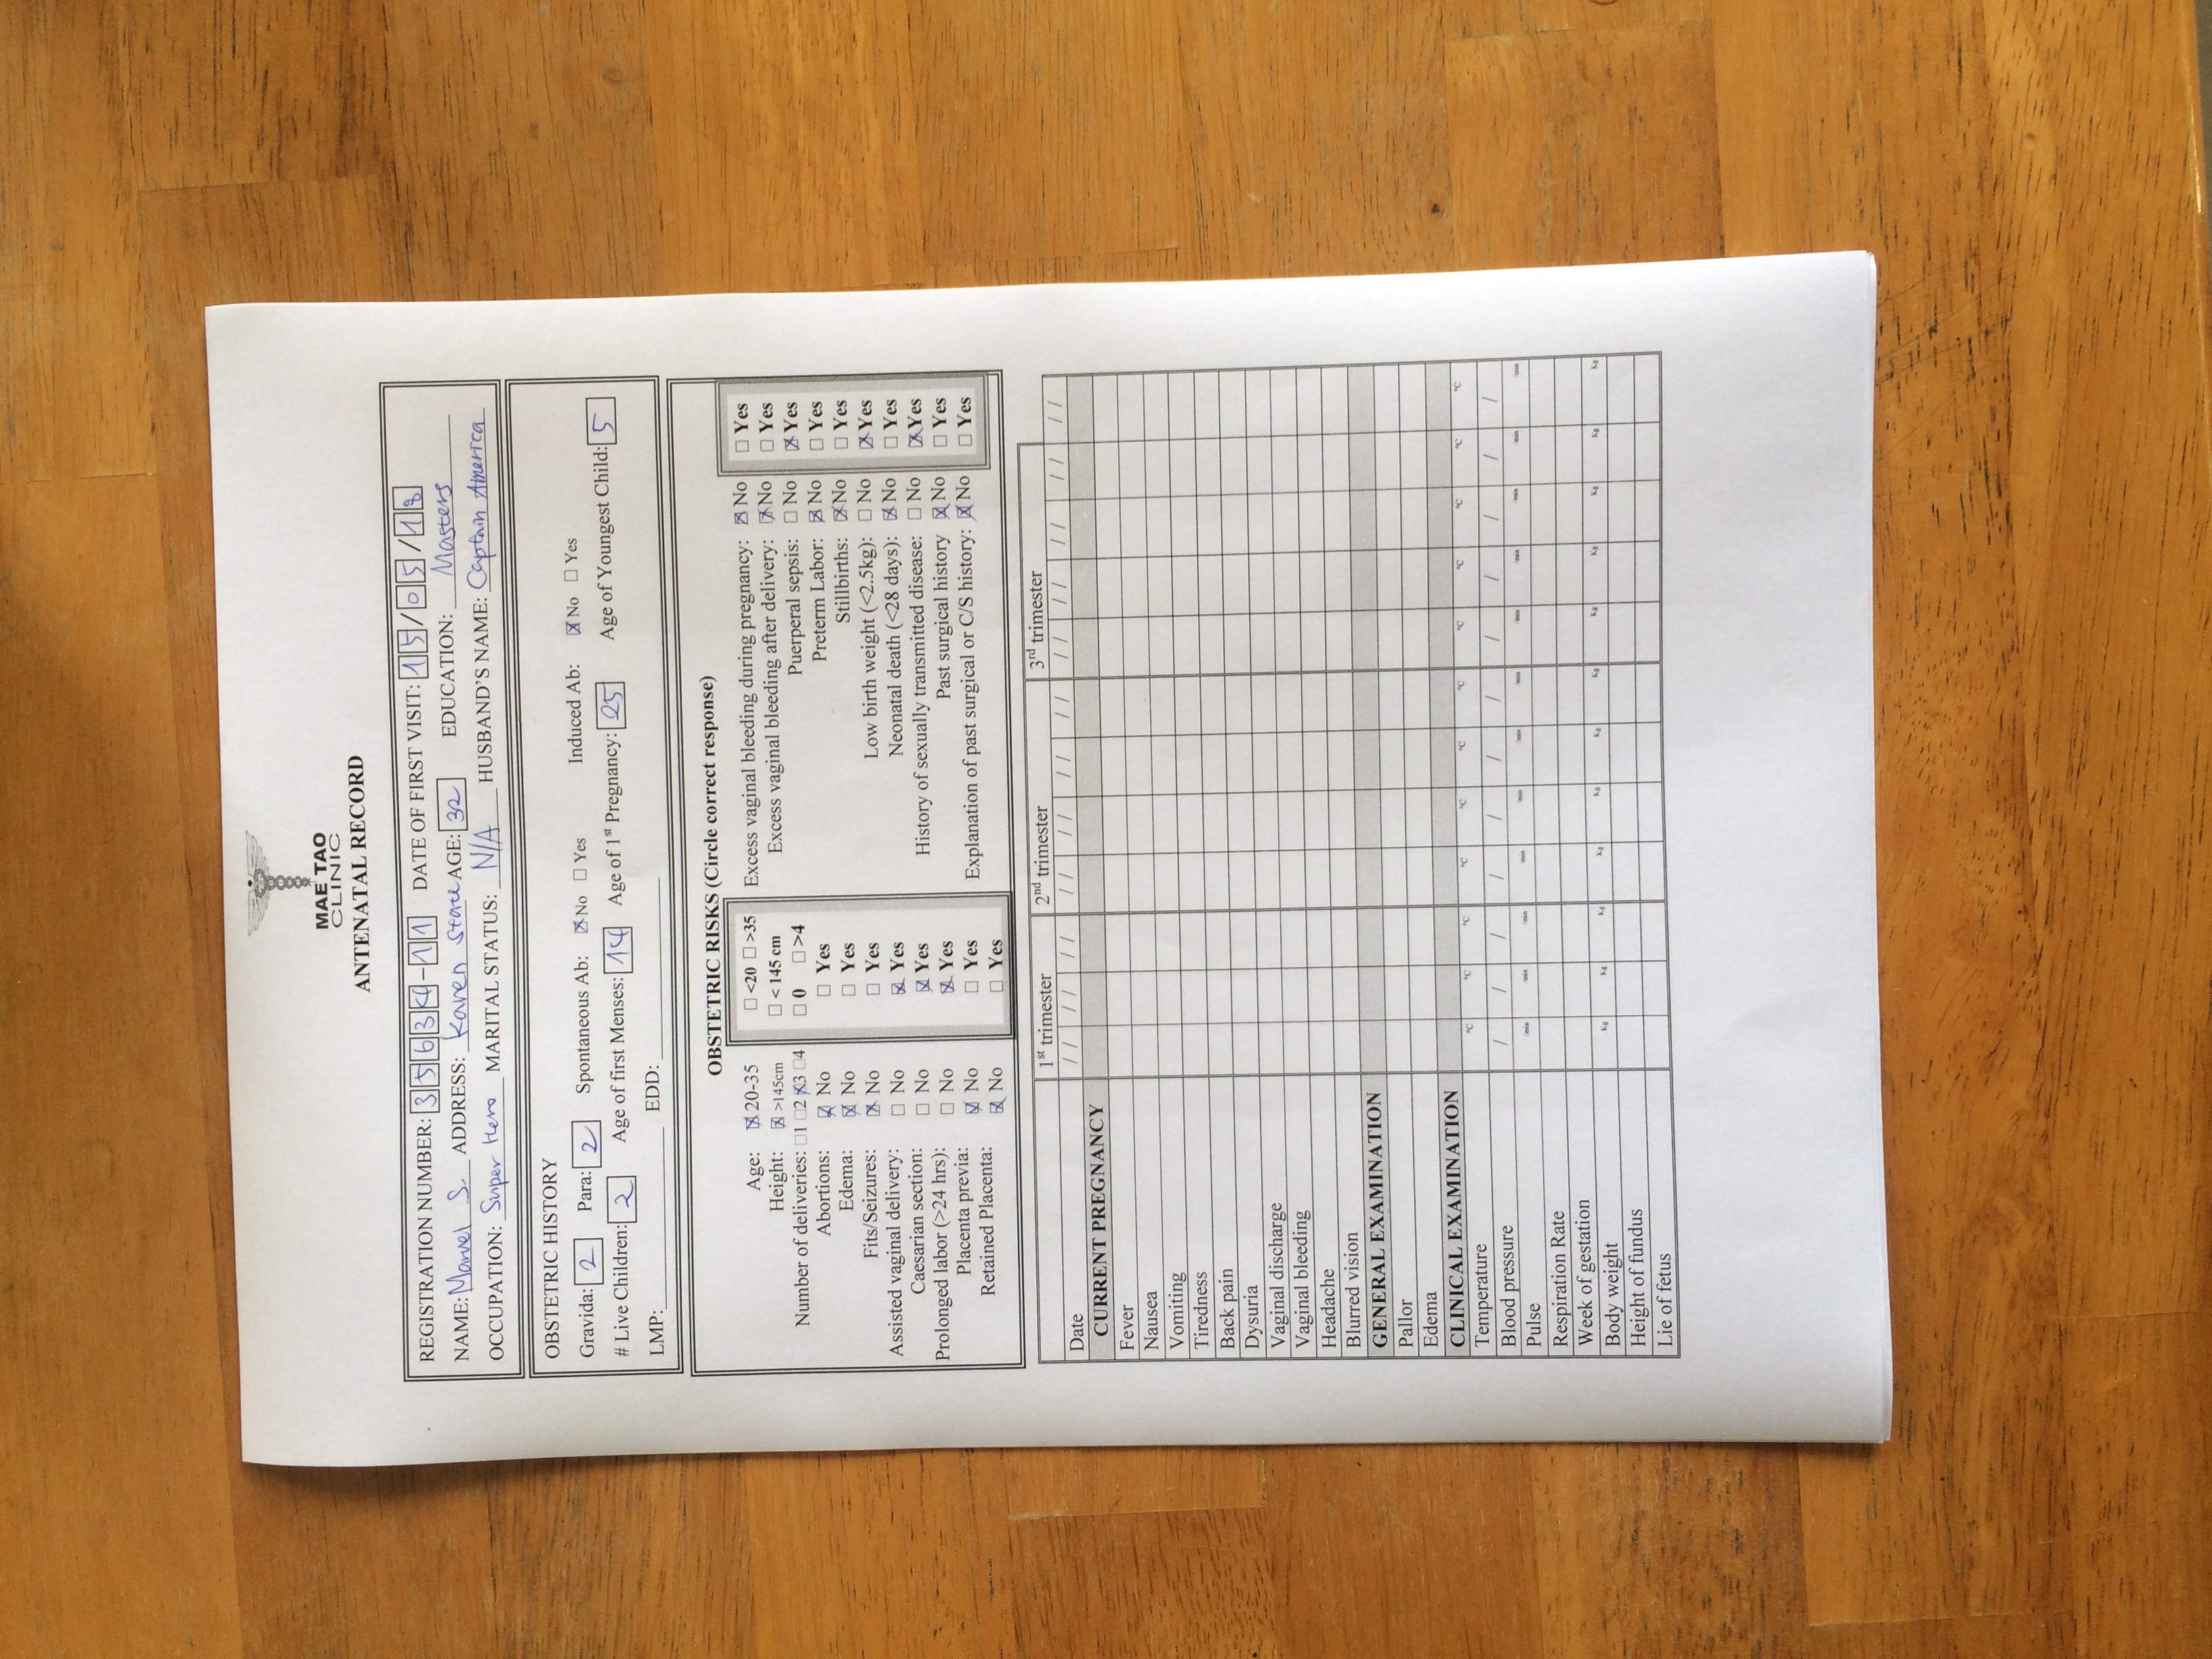 MAE TAO
CLINIC
ANTENATAL RECORD
REGISTRATION NUMBER: 35634-11 DATE OF FIRST VISIT: 15/05/18
NAME: Marvel S. ADDRESS: Karen State AGE: 32 EDUCATION: Masters
OCCUPATION: Super Hero MARITAL STATUS: N/A HUSBAND'S NAME: Captain America
OBSTETRIC HISTORY
Gravida: 2 Para: 2 Spontaneous Ab: ☒ No ☐ Yes Induced Ab: ☒ No ☐ Yes
# Live Children: 2 Age of first Menses: 14 Age of 1st Pregnancy: 25 Age of Youngest Child: 5
LMP: EDD:
OBSTETRIC RISKS (Circle correct response)
Age: ☒ 20-35 ☐ <20 ☐ >35
Height: ☒ >145cm ☐ < 145 cm
Number of deliveries: ☐1 ☐2 ☒3 ☐4 ☐ 0 ☐ >4
Abortions: ☒ No ☐ Yes
Edema: ☒ No ☐ Yes
Fits/Seizures: ☒ No ☐ Yes
Assisted vaginal delivery: ☐ No ☒ Yes
Caesarian section: ☐ No ☒ Yes
Prolonged labor (>24 hrs): ☐ No ☒ Yes
Placenta previa: ☒ No ☐ Yes
Retained Placenta: ☒ No ☐ Yes
Excess vaginal bleeding during pregnancy: ☒ No ☐ Yes
Excess vaginal bleeding after delivery: ☒ No ☐ Yes
Puerperal sepsis: ☐ No ☒ Yes
Preterm Labor: ☒ No ☐ Yes
Stillbirths: ☒ No ☐ Yes
Low birth weight (<2.5kg): ☐ No ☒ Yes
Neonatal death (<28 days): ☒ No ☐ Yes
History of sexually transmitted disease: ☐ No ☒ Yes
Past surgical history ☒ No ☐ Yes
Explanation of past surgical or C/S history: ☒ No ☐ Yes
1st trimester 2nd trimester 3rd trimester
Date / / / / / / / / / / / / / / / / / / / / / / / /
CURRENT PREGNANCY
Fever
Nausea
Vomiting
Tiredness
Back pain
Dysuria
Vaginal discharge
Vaginal bleeding
Headache
Blurred vision
GENERAL EXAMINATION
Pallor
Edema
CLINICAL EXAMINATION
Temperature °C °C °C °C °C °C °C °C °C °C °C °C
Blood pressure / / / / / / / / / / / /
Pulse /min /min /min /min /min /min /min /min /min /min /min /min
Respiration Rate
Week of gestation
Body weight Kg Kg Kg Kg Kg Kg Kg Kg Kg Kg Kg Kg
Height of fundus
Lie of fetus